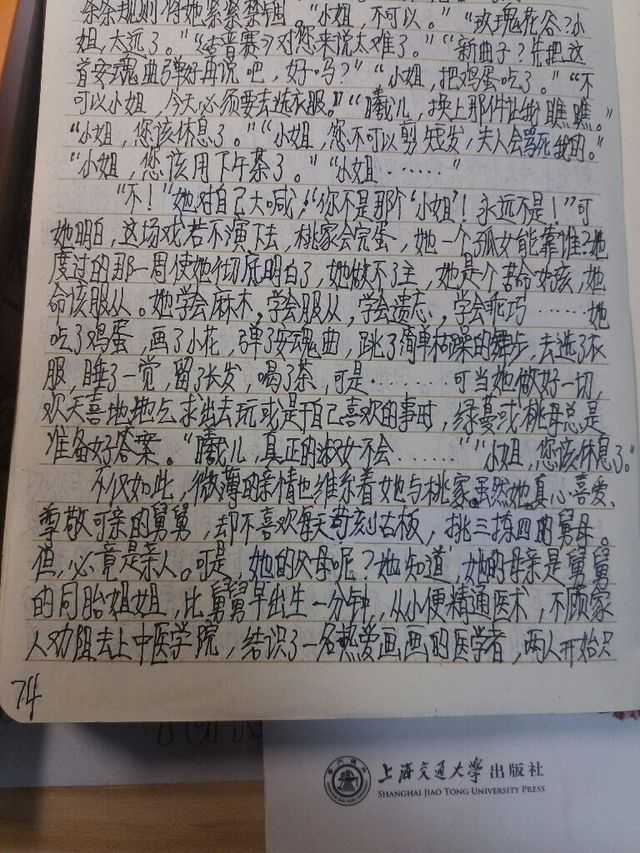 条条规则将她紧紧禁锢。“小姐，不可以。”“玫瑰花谷？小
姐，太远了。”“《吉普赛》对您来说太难了。”“新曲子？先把这
首安魂曲弹好再说吧，好吗？”“小姐，把鸡蛋吃了。”“不
可以小姐，今天必须要去选衣服。”“曦儿，换上那件让我瞧瞧。”
“小姐，您该休息了。”“小姐，您不可以剪短发，夫人会骂死我的。”
“小姐，您该用下午茶了。”“小姐……”
“不！”她对自己大喊，“你不是那个‘小姐’！永远不是！”可
她明白，这场戏若不演下去，桃家会完蛋，她一个孤女能靠谁？她
度过的那一周使她彻底明白了，她做不了主，她是个苦命女孩，她
命该服从。她学会麻木，学会服从，学会遗忘，学会乖巧……她
吃了鸡蛋，画了小花，弹了安魂曲，跳了简单枯躁的舞步，去选了衣
服，睡了一觉，留了长发，喝了茶，可是………可当她做好一切，
欢天喜地地乞求出去玩或是干自己喜欢的事时，绿蔓或桃母总是
准备好答案。“曦儿，真正的淑女不会……”“小姐，您该休息了。”
不仅如此，微薄的亲情也维系着她与桃家。虽然她真心喜爱、
尊敬可亲的舅舅，却不喜欢每天苛刻古板，挑三拣四的舅母。
但，必竟是亲人。可是，她的父母呢？她知道，她的母亲是舅舅
的同胎姐姐，比舅舅早出生一分钟，从小便精通医术，不顾家
人劝阻去上中医学院，结识了一名热爱画画的医学者，两人开始只
74
上海交通大学出版社
SHANGHAI JIAO TONG UNIVERSITY PRESS